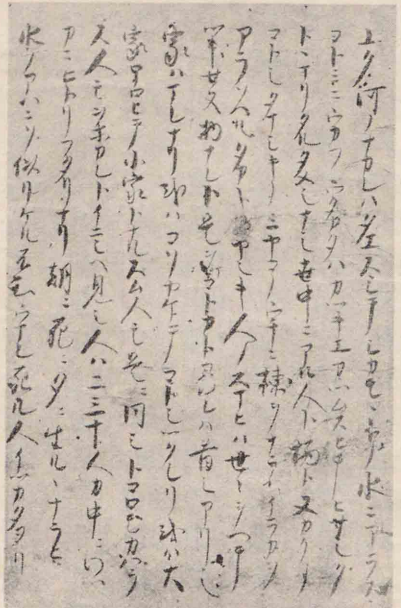 ユク河ノナカレハタエスシテシカモヽトノ水ニアラス
ヨトミニウカフウタカタハカツキエカツムスヒテヒサシク
トヽマリタルタメシナシ世中ニアル人ト栖ト又カクノ
コトシタマシキノミヤコノウチニ棟ヲナラヘイラカヲ
アラソヘルタカキイヤシキ人ノスマヒハ世々ヲヘテ
ツキセヌ物ナレト是ヲマコトカト尋レハ昔シアリシ
家ハマレナリ或ハコソヤケテコトシツクレリ或ハ大
家ホロヒテ小家トナルスム人モ是ニ同シトコロモカハラ
ス人モヲホカレトイニシヘ見シ人ハ二三十人カ中ニワツ
カニヒトリフタリナリ朝ニ死ニ夕ニ生ルヽナラヒ
水ノアハニソ似リケル不知ウマレ死ル人イツカタヨリ